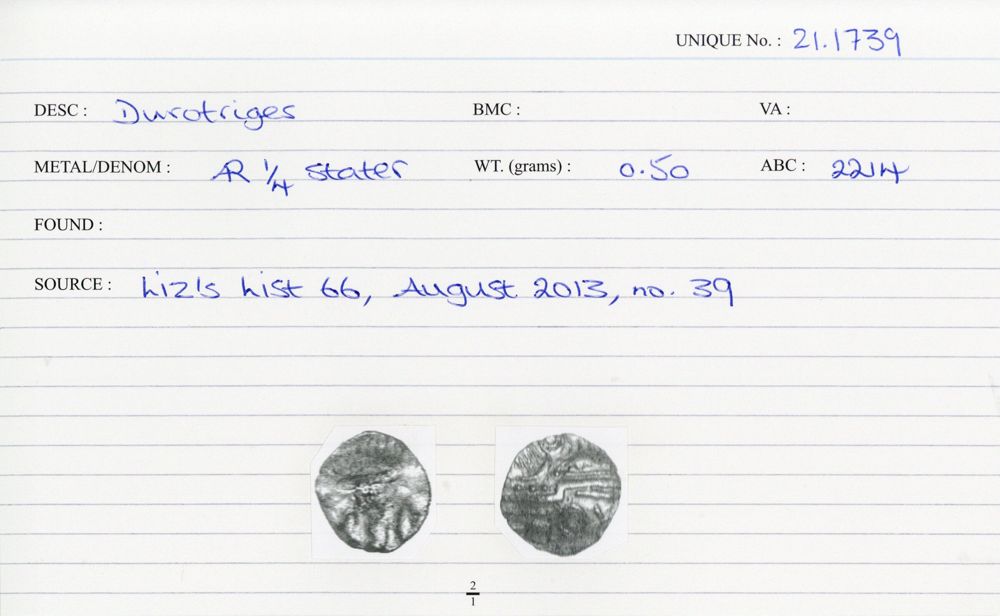 UNIQUE No. : 21.1739
DESC : Durotriges BMC : VA :
METAL/DENOM : AR 1/4 stater WT. (grams) : 0.50 ABC : 2214
FOUND :
SOURCE : Liz's List 66, August 2013, no. 39
2
1